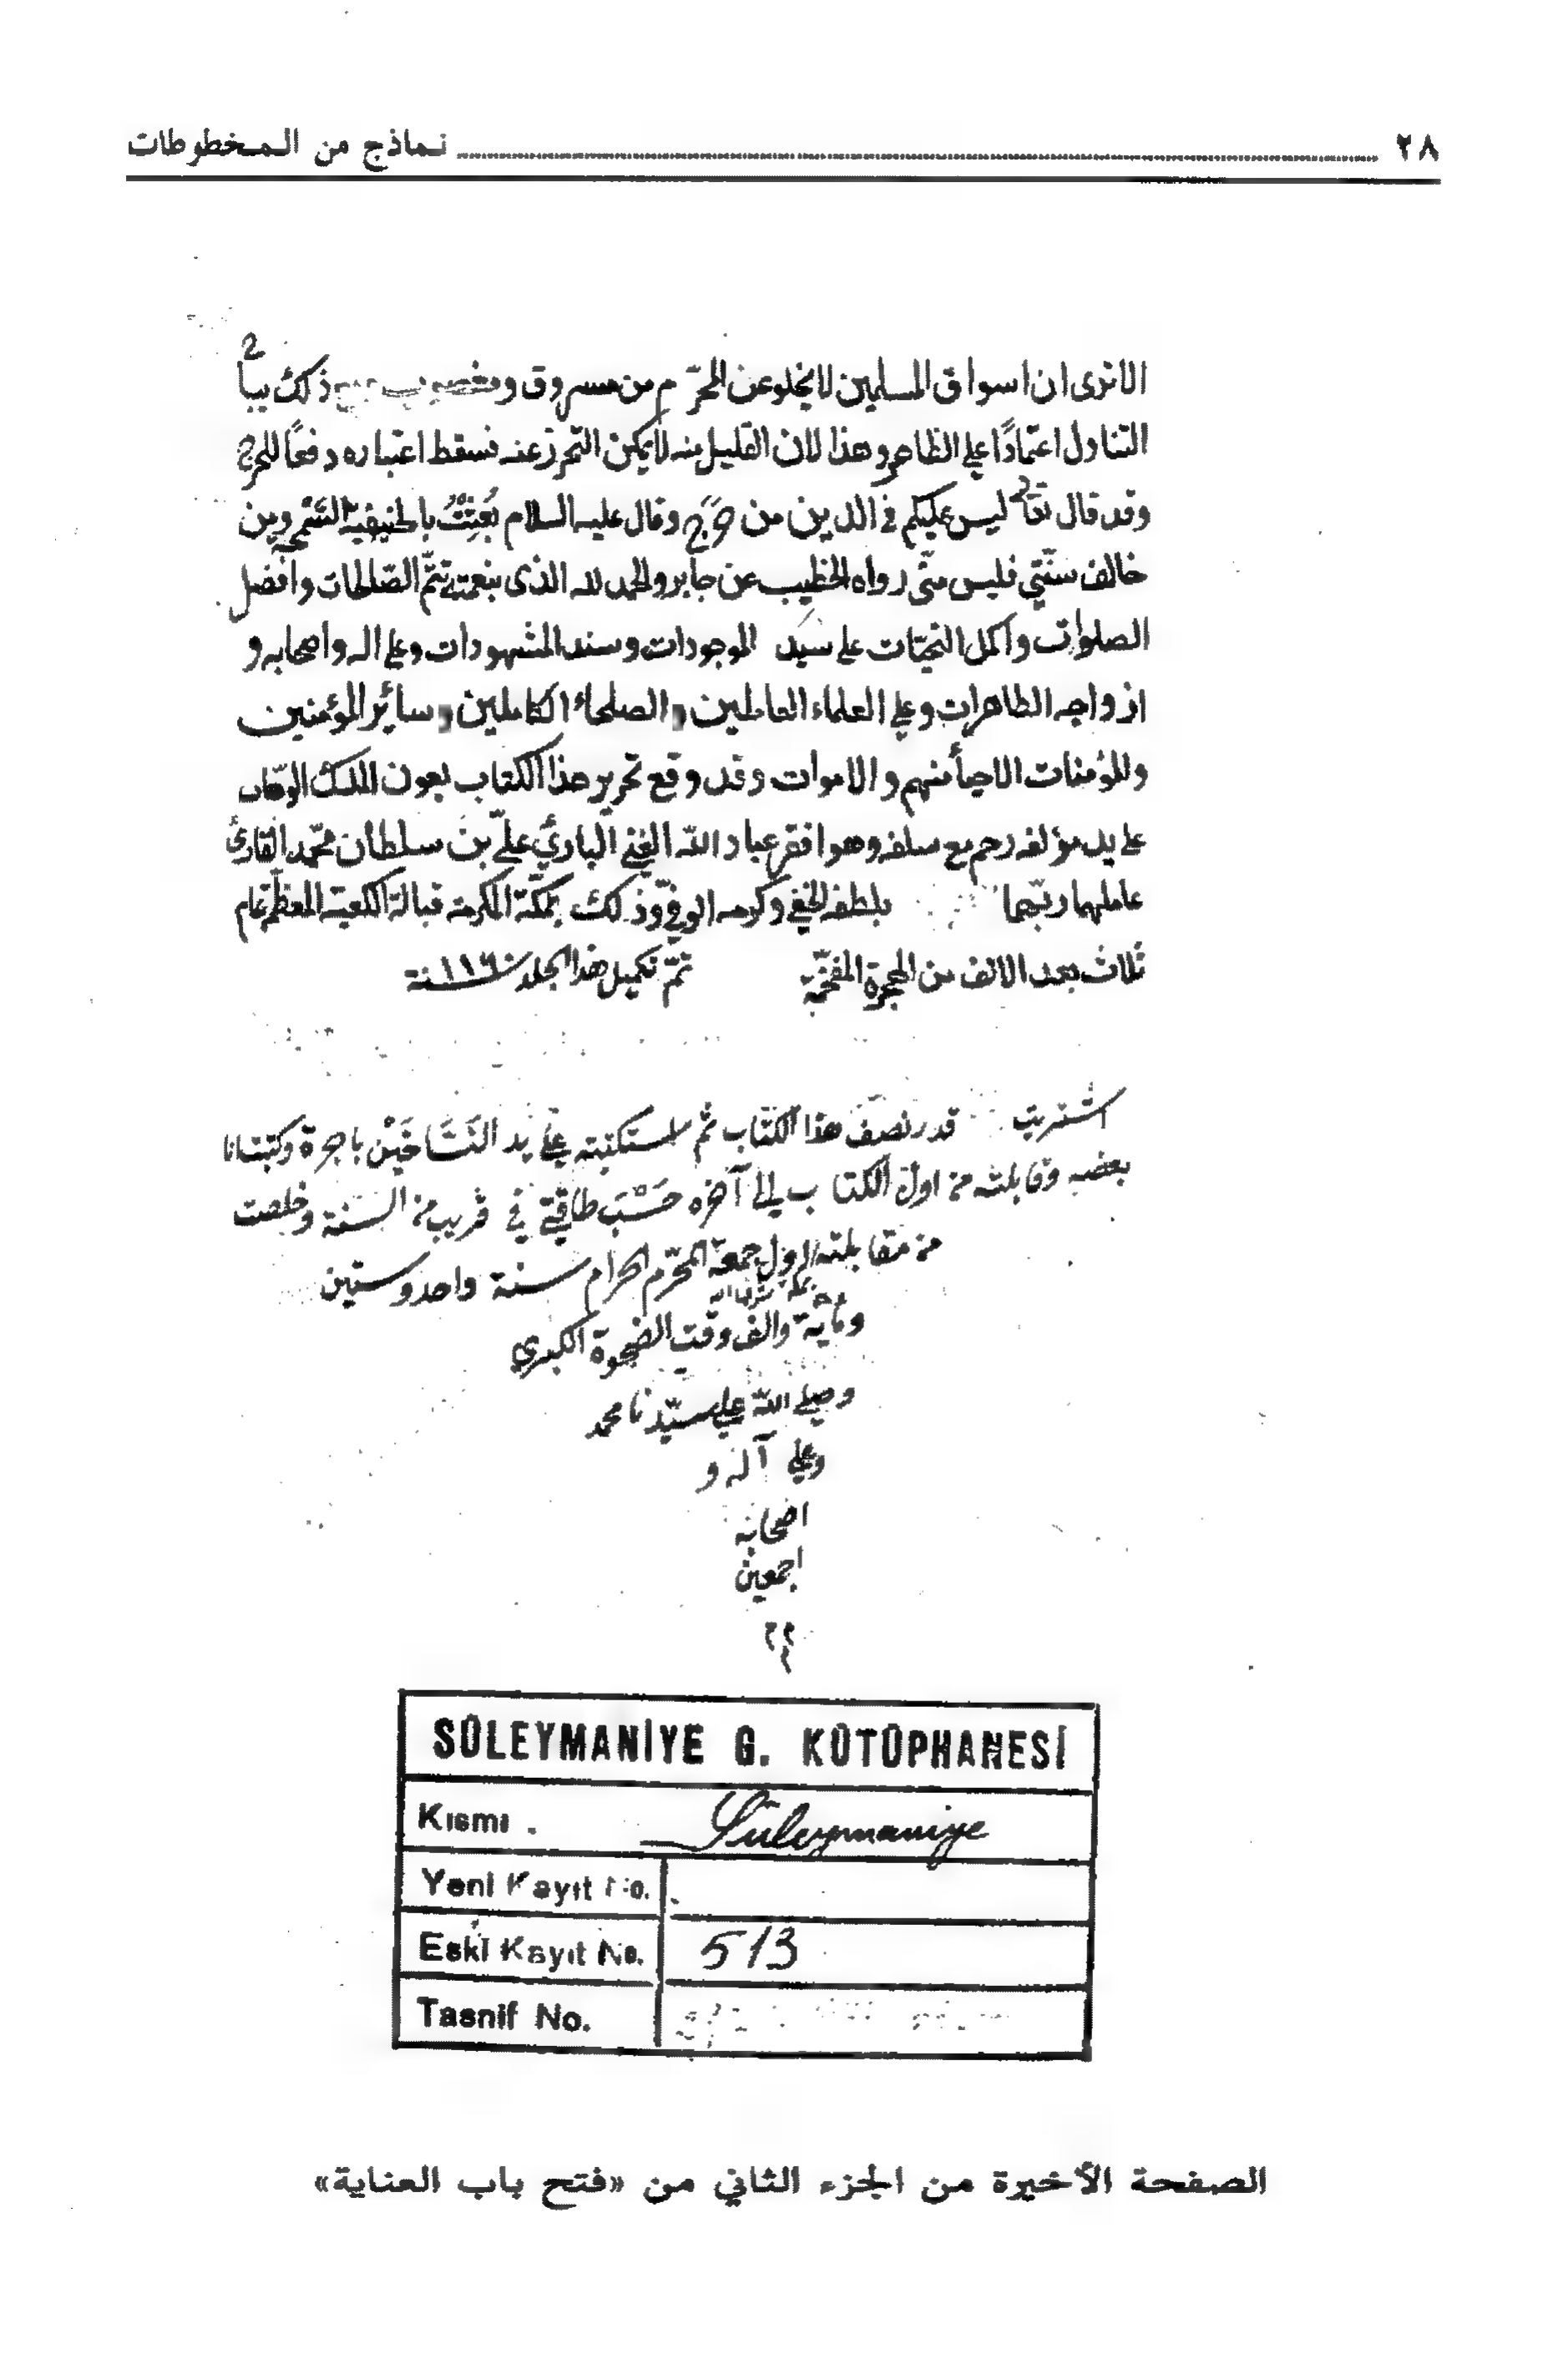 ٢٨ نماذج من المخطوطات
الا ترى ان اسواق المسلمين لا يخلو عن المحرّم من مسروق و مع ذلك يباح
التناول اعتمادًا على الظاهر وهذا لان القليل منه لا يمكن التحرز عنه فسقط اعتباره دفعًا للحرج
وقد قال تعالى ليس عليكم في الدين من حرج وقال عليه السلام بُعِثْتُ بالحنيفية السّمحة ومن
خالف سنّتي فليس منّي رواه الخطيب عن جابر والحمد لله الذى بنعمته تتمّ الصّالحات وافضل
الصلوات واكمل التحيّات على سيّد الموجودات وسند المشهودات وعلى اله واصحابه و
ازواجه الطاهرات وعلى العلماء العاملين والصلحاء الكاملين وسائر المؤمنين
والمؤمنات الاحيأ منهم والاموات وقد وقع تحرير هذا الكتاب بعون الملك الوهّاب
على يد مؤلفه رحم مع سلفه وهو افقر عباد الله الغني البارئ عليّ بن سلطان محمّد القارئ
عاملهما ربّهما بلطفه الخفي وكرمه الوفيّ وذلك بمكّة المكرمة قبالة الكعبة المعظّمة عام
ثلاث بعد الالف من الهجرة المفخّمة تمّ تكميل هذا الجلد سنة ١١٦٠
اشتريت قدر نصف هذا الكتاب ثم استكتبته على يد النَسَّاخَيْن باجرة وكتبت انا
بعضه وقابلته من اول الكتاب الى آخره حَسْبَ طاقتي في قريب من السنة وخلصت
من مقابلته اول جمعة المحرّم الحرام سنة واحد وستين
ومأية والف وقت الضحوة الكبرى
وصلى الله على سيّدنا محمد
وعلى آله و
اصحابه
اجمعين
SÜLEYMANİYE G. KÜTÜPHANESİ
Kısmı . Süleymaniye
Yeni Kayıt No.
Eski Kayıt No. 513
Tasnif No.
الصفحة الأخيرة من الجزء الثاني من «فتح باب العناية»